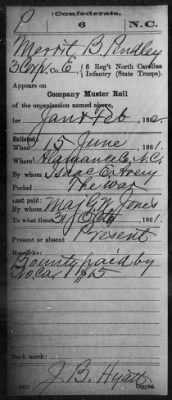 Confederate.
P 6 N.C.
Merrit B. Pendley
3 Corp., Co. E, 6 Reg't North Carolina
Infantry (State Troops).
Appears on
Company Muster Roll
of the organization named above,
for Jan & Feb, 1862.
Enlisted:
When 15 June, 1861.
Where Alamance Co. N.C.
By whom Isaac E. Avery
Period The War
Last paid:
By whom Maj G. W. Jones
To what time 31 Octr, 1861.
Present or absent Present
Remarks:
Bounty paid by
No Car $15
Book mark:
J. B. Hyatt
Copyist.